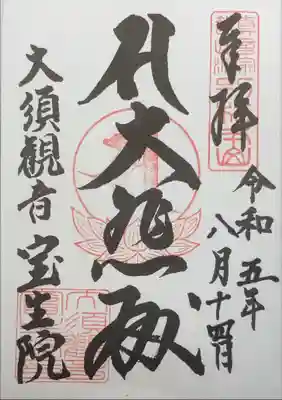 奉拝
令和五年
八月十四日
大悲殿
大須観音
宝生院